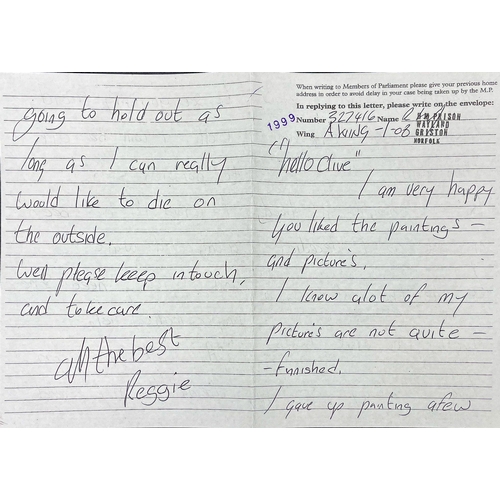 When writing to Members of Parliament please give your previous home
address in order to avoid delay in your case being taken up by the M.P.
In replying to this letter, please write on the envelope:
1999
Number 322416 Name
Wing A WING - 1-08
H M PRISON
WAYLAND
GRISTON
NORFOLK
(1)
"hello Clive"
I am very happy
you liked the paintings -
and picture's.
I know alot of my
picture's are not quite -
- funished.
I gave up panting afew
going to hold out as
long as I can really
would like to die on
the outside.
Well please keep in touch,
and take care.
all the best
Reggie